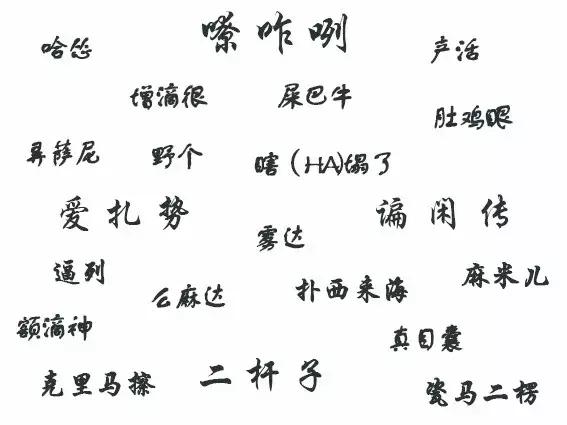 嘹咋咧
哈怂
声活
增滴很
屎巴牛
肚鸡眼
寻萨尼
野个
瞎（HA)塌了
爱扎势
谝闲传
雾达
逼列
么麻达
扑西来海
麻米儿
额滴神
真目囊
克里马擦
二杆子
瓷马二楞